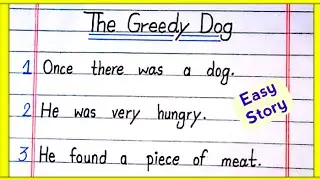 The Greedy Dog
1 Once there was a dog.
2 He was very hungry.
Easy
Story
3 He found a piece of meat.